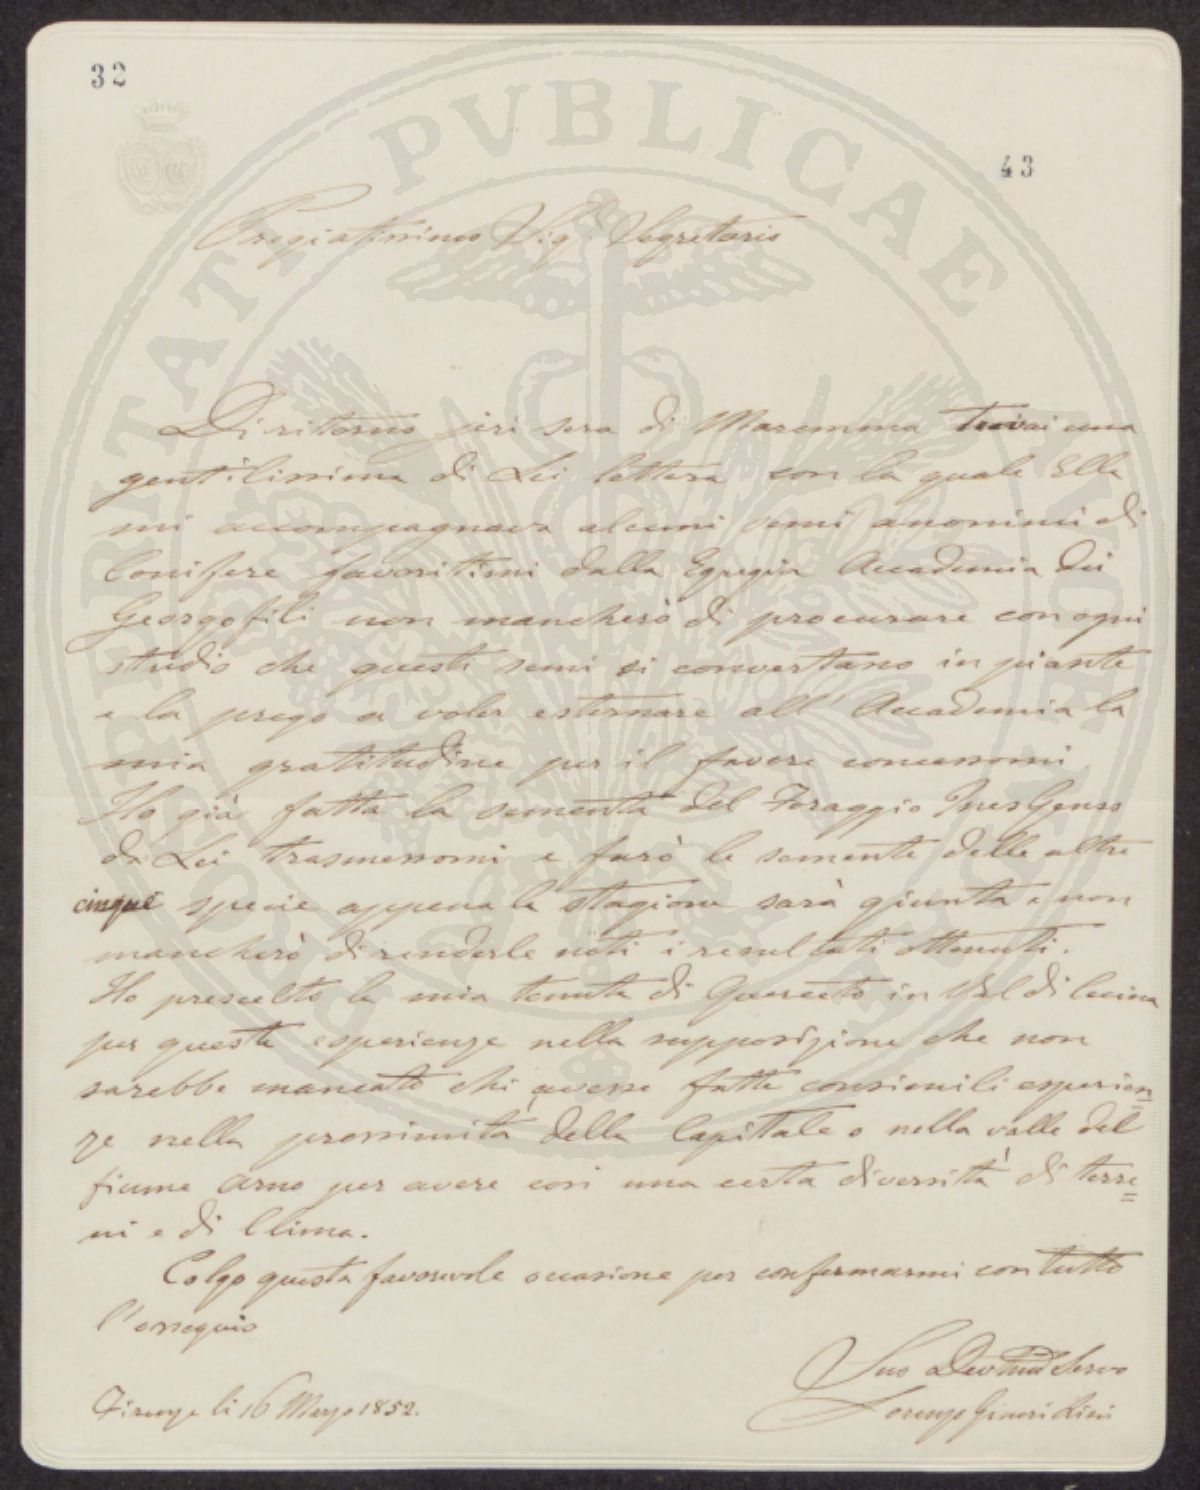 32
43
PROSPERITATI PVBLICAE
Pregiatissimo Sig.r Segretario
Di ritorno jeri sera di Maremma trovai una
gentilissima di Lei lettera con la quale Ella
mi accompagnava alcuni semi anonimi di
Conifere favoritimi dalla Egregia Accademia dei
Georgofili non mancherò di procurare con ogni
studio che questi semi si convertano in piante
e la prego a voler esternare all'Accademia la
mia gratitudine per il favore concessomi
Ho già fatta la sementa del Foraggio
da Lei trasmessomi e farò le semente delle altre
cinque specie appena la stagione sarà giunta e non
mancherò di renderle noti i resultati ottenuti.
Ho prescelto la mia tenuta di Querceto in Val di Cecina
per queste esperienze nella supposizione che non
sarebbe mancato chi avesse fatte consimili esperien=
ze nella prossimità della Capitale o nella valle del
fiume Arno per avere così una certa diversità di terre=
ni e di Clima.
Colgo questa favorevole occasione per confermarmi con tutto
l'ossequio
Suo Dev.mo Servo
Firenze li 16 Marzo 1852.
Lorenzo Ginori Lisci